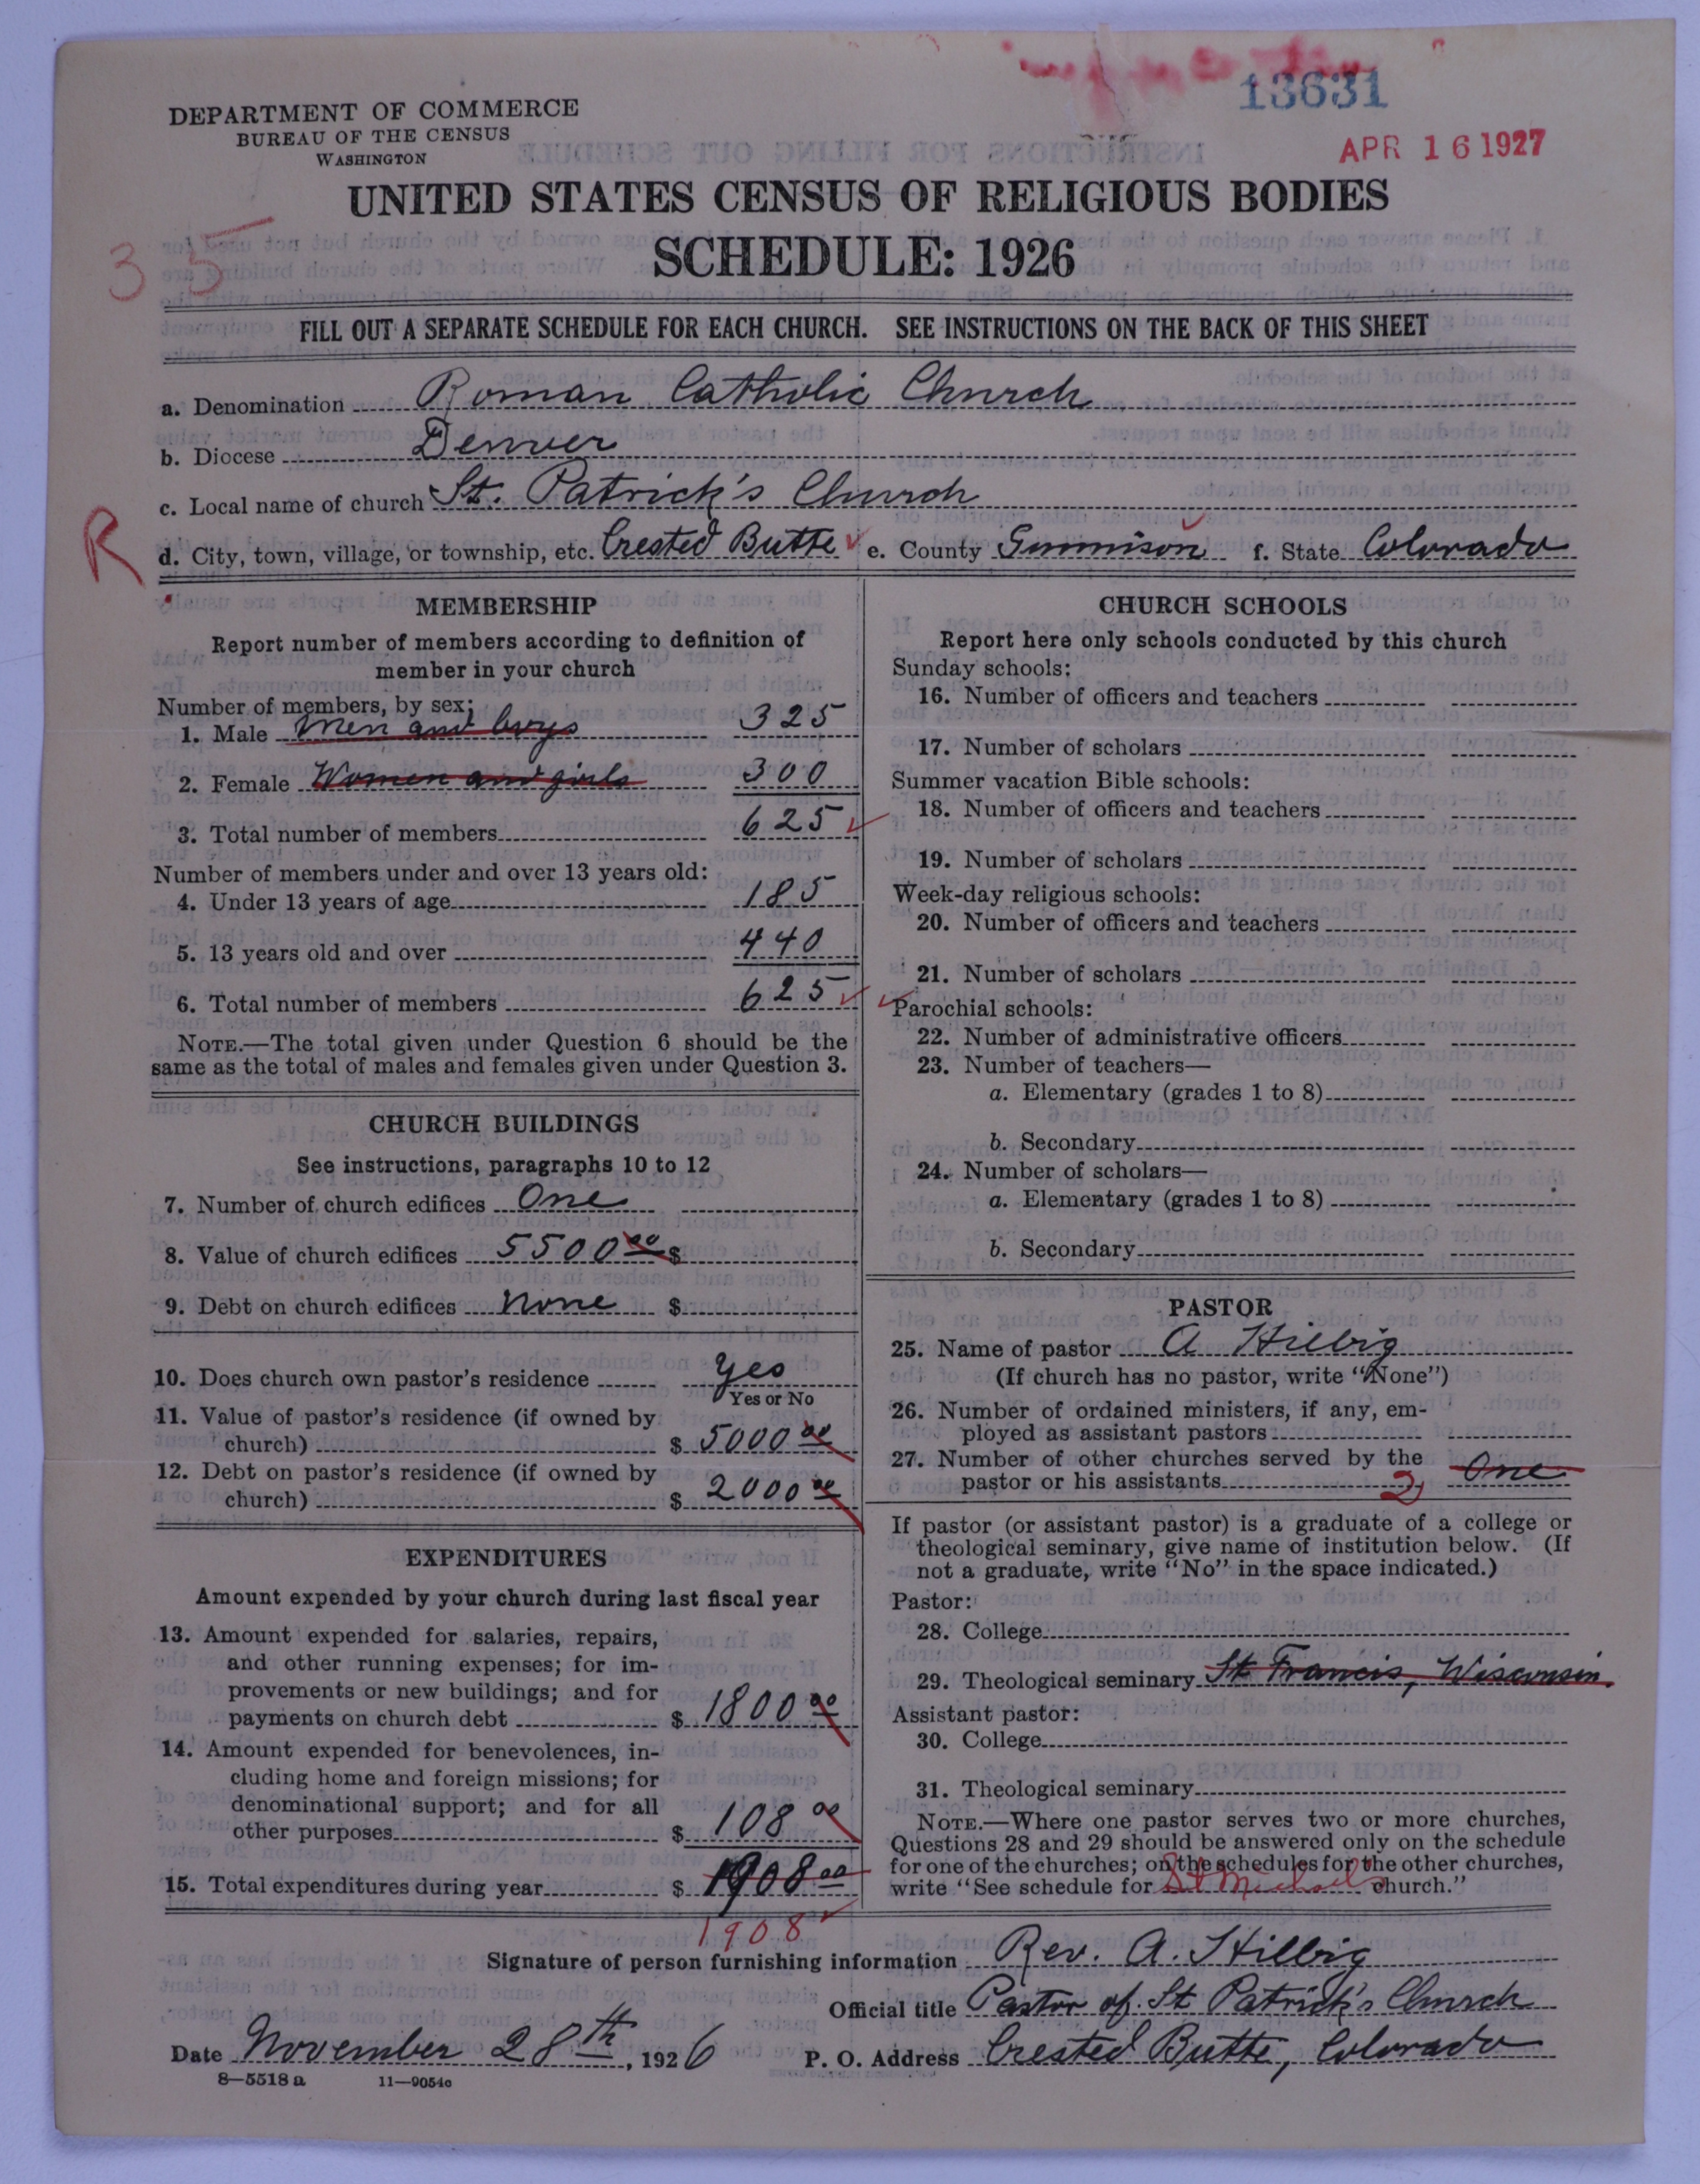 13631
APR 16 1927
DEPARTMENT OF COMMERCE
BUREAU OF THE CENSUS
WASHINGTON
UNITED STATES CENSUS OF RELIGIOUS BODIES
SCHEDULE: 1926
35
FILL OUT A SEPARATE SCHEDULE FOR EACH CHURCH. SEE INSTRUCTIONS ON THE BACK OF THIS SHEET
a. Denomination Roman Catholic Church
b. Diocese Denver
c. Local name of church St. Patrick's Church
R
d. City, town, village, or township, etc. Crested Butte e. County Gunnison f. State Colorado
MEMBERSHIP
Report number of members according to definition of
member in your church
Number of members, by sex:
1. Male Men and boys 325
2. Female Women and girls 300
3. Total number of members 625
Number of members under and over 13 years old:
4. Under 13 years of age 185
5. 13 years old and over 440
6. Total number of members 625
NOTE.—The total given under Question 6 should be the
same as the total of males and females given under Question 3.
CHURCH BUILDINGS
See instructions, paragraphs 10 to 12
7. Number of church edifices One
8. Value of church edifices 5500.00 $
9. Debt on church edifices None $
10. Does church own pastor's residence Yes
Yes or No
11. Value of pastor's residence (if owned by
church) $ 5000.00
12. Debt on pastor's residence (if owned by
church) $ 2000.00
EXPENDITURES
Amount expended by your church during last fiscal year
13. Amount expended for salaries, repairs,
and other running expenses; for im-
provements or new buildings; and for
payments on church debt $ 1800 00
14. Amount expended for benevolences, in-
cluding home and foreign missions; for
denominational support; and for all
other purposes $ 108 00
15. Total expenditures during year $ 1908 00
1908
CHURCH SCHOOLS
Report here only schools conducted by this church
Sunday schools:
16. Number of officers and teachers
17. Number of scholars
Summer vacation Bible schools:
18. Number of officers and teachers
19. Number of scholars
Week-day religious schools:
20. Number of officers and teachers
21. Number of scholars
Parochial schools:
22. Number of administrative officers
23. Number of teachers—
a. Elementary (grades 1 to 8)
b. Secondary
24. Number of scholars—
a. Elementary (grades 1 to 8)
b. Secondary
PASTOR
25. Name of pastor A Hilbig
(If church has no pastor, write "None")
26. Number of ordained ministers, if any, em-
ployed as assistant pastors
27. Number of other churches served by the
pastor or his assistants 2 One
If pastor (or assistant pastor) is a graduate of a college or
theological seminary, give name of institution below. (If
not a graduate, write "No" in the space indicated.)
Pastor:
28. College
29. Theological seminary St Francis, Wisconsin.
Assistant pastor:
30. College
31. Theological seminary
NOTE.—Where one pastor serves two or more churches,
Questions 28 and 29 should be answered only on the schedule
for one of the churches; on the schedules for the other churches,
write "See schedule for St Michaels church."
Signature of person furnishing information Rev. A. Hilbig
Official title Pastor of St Patrick's Church
Date November 28th, 1926 P. O. Address Crested Butte, Colorado
8—5518 a 11—9054c